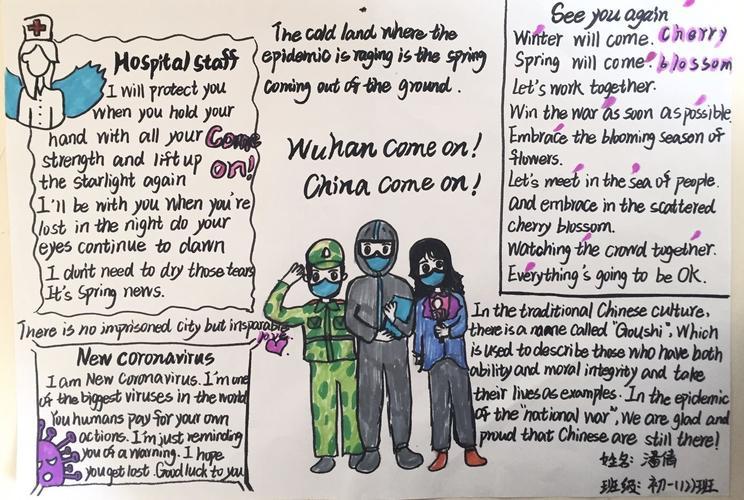 Hospital staff
I will protect you
when you hold your
hand with all your
strength and lift up
the starlight again
I'll be with you when you're
lost in the night do your
eyes continue to dawn
I don't need to dry those tears
It's Spring news.
Come
on!
The cold land where the
epidemic is raging is the spring
coming out of the ground.
Wuhan come on!
China come on!
See you again
Winter will come. Cherry
Spring will come. blossom
Let's work together.
Win the war as soon as possible.
Embrace the blooming season of
flowers.
Let's meet in the sea of people.
and embrace in the scattered
cherry blossom.
Watching the crowd together.
Everything's going to be OK.
There is no imprisoned city but insparable
love.
New coronavirus
I am New Coronavirus. I'm one
of the biggest viruses in the world
You humans pay for your own
actions. I'm just reminding
you of a warning. I hope
you get lost. Good luck to you
In the traditional Chinese culture,
there is a name called "Goushi". Which
is used to describe those who have both
ability and moral integrity and take
their lives as examples. In the epidemic
of the "national war", we are glad and
proud that Chinese are still there!
姓名: 潘倩
班级: 初一(12)班